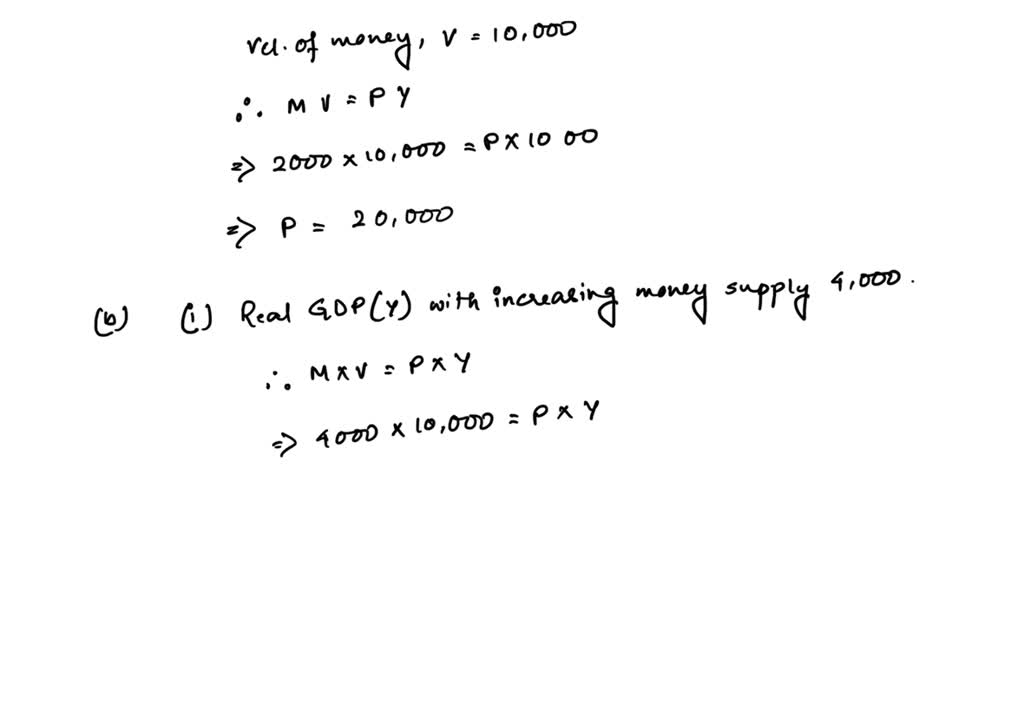 vel. of money, V = 10,000
∴ M V = P Y
⇒ 2000 × 10,000 = P × 10 00
⇒ P = 20,000
(b) (i) Real GDP(Y) with increasing money supply 4,000.
∴ M × V = P × Y
⇒ 4000 × 10,000 = P × Y